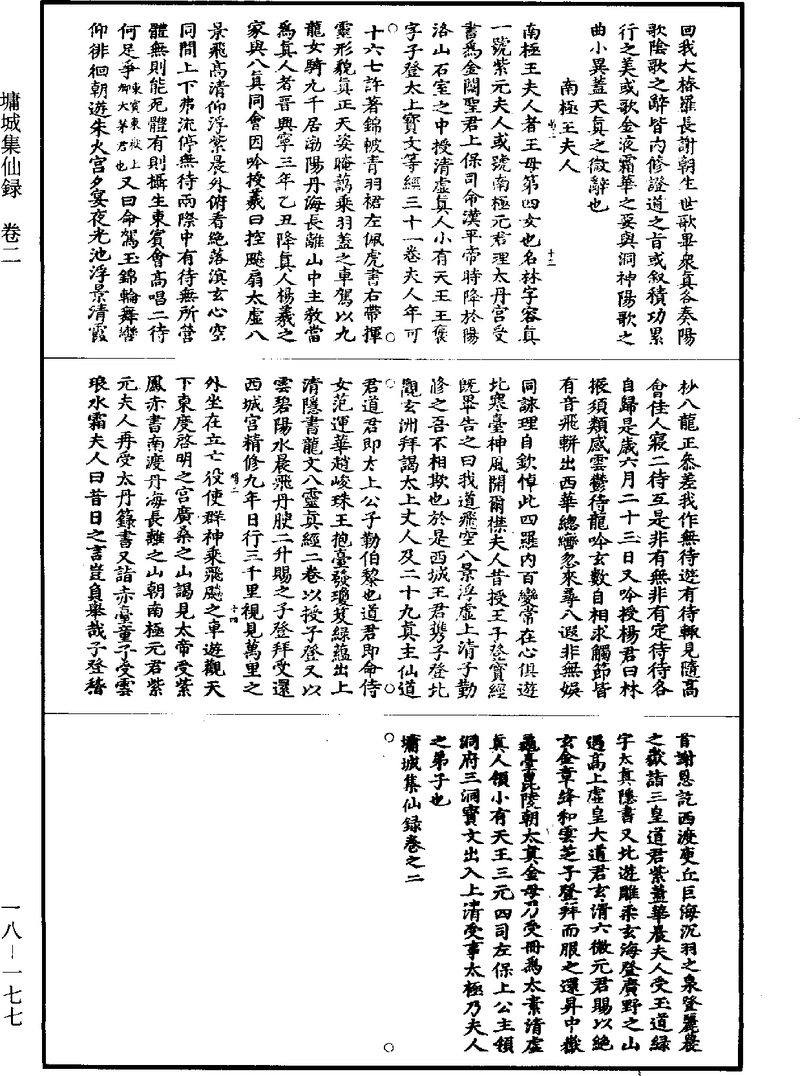 回我大椿羅長謝朝生世歌畢衆真各奏陽
歌陰歌之辭皆內修證道之旨或叙積功累
行之美或歌金液霜華之要與洞神陽歌之
曲小異蓋天真之微辭也
南極王夫人
南極王夫人者王母第四女也名林字容真
一號紫元夫人或號南極元君理太丹宮受
書爲金闕聖君上保司命漢平帝時降於陽
洛山石室之中授清虛真人小有天王王褒
字子登太上寶文等經三十一卷夫人年可
十六七許著錦帔青羽裙左佩虎書右帶揮
靈形貌真正天姿晻藹乘羽蓋之車駕以九
龍女騎九千居渤陽丹海長離山中主教當
爲真人者晉興寧三年乙丑降真人楊羲之
家與八真同會因吟授羲曰控飈扇太虛八
景飛高清仰浮紫晨外俯看絶落溟玄心空
同間上下弗流停無待兩際中有待無所營
體無則能死體有則攝生東賓會高唱二待
何足爭東賓東嶽上卿大茅君也又曰命駕玉錦輪舞轡
仰徘徊朝遊朱火宮夕宴夜光池浮景清霞
杪八龍正參差我作無待遊有待輒見隨高
會佳人寢二待互是非有無非有定待待各
自歸是歲六月二十三日又吟授楊君曰林
振須類感雲鬱待龍吟玄數自相求觸節皆
有音飛軿出西華總轡忽來尋八遐非無娛
同詠理自欽悼此四羅內百變常在心俱遊
北寒臺神風開爾襟夫人昔授王子登寶經
既畢告之曰我道飛空八景浮虛上清子勤
修之吾不相欺也於是西城王君携子登北
觀玄洲拜謁太上丈人及二十九真主仙道
君道君即太上公子勒伯黎也道君即命侍
女范運華趙峻珠王抱臺發瓊笈綠蘊出上
清隱書龍文八靈真經二卷以授子登又以
雲碧陽水晨飛丹腴二升賜之子登拜受還
西城宮精修九年日行三千里視見萬里之
外坐在立亡役使群神乘飛飈之車遊觀天
下東度啓明之宮廣桑之山謁見太帝受紫
鳳赤書南渡丹海長離之山朝南極元君紫
元夫人再受太丹籙書又詣赤臺童子受雲
琅水霜夫人曰昔日之言豈負舉哉子登稽
首謝恩訖西渡庾丘巨海沉羽之泉登麗農
之嶽詣三皇道君紫蓋華晨夫人受玉道緑
字太真隱書又北遊雕柔玄海登廣野之山
遇高上虛皇大道君玄清六微元君賜以絶
玄金章絳和雲芝子登拜而服之還昇中嶽
龜臺毘陵朝太真金母乃受冊爲太素清虛
真人領小有天王三元四司左保上公主領
洞府三洞寶文出入上清受事太極乃夫人
之弟子也
墉城集仙録卷之二
墉城集仙録 卷二
一八－一七七